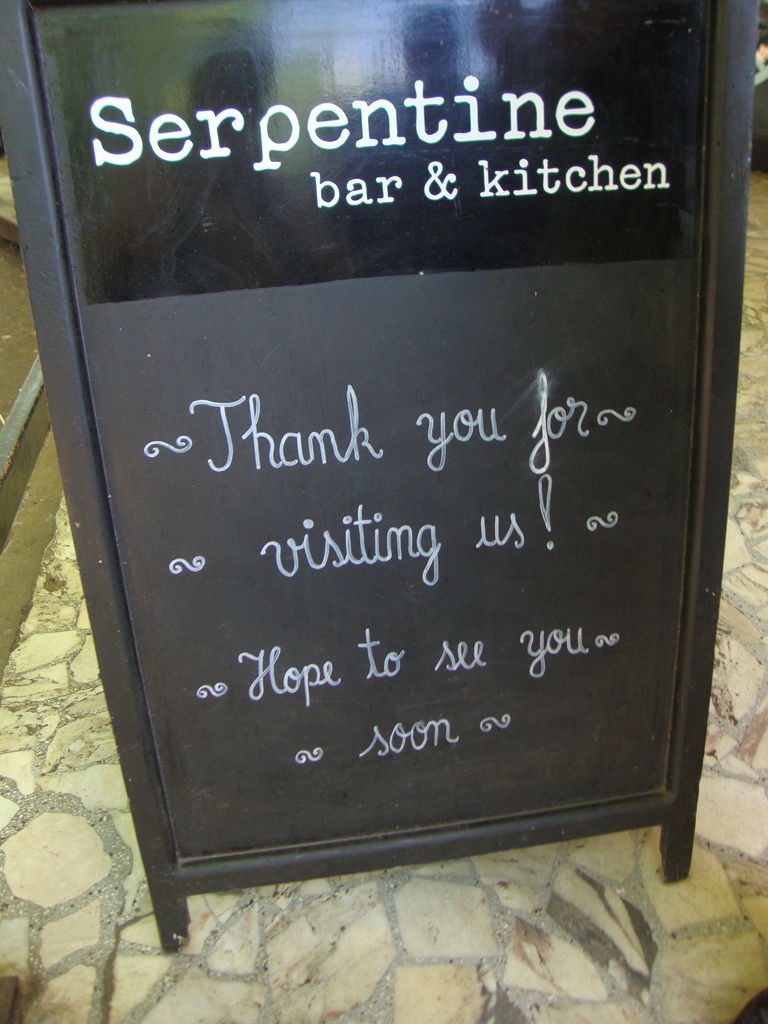 Serpentine
bar & kitchen
~Thank you for~
~ visiting us! ~
~Hope to see you~
~ soon ~